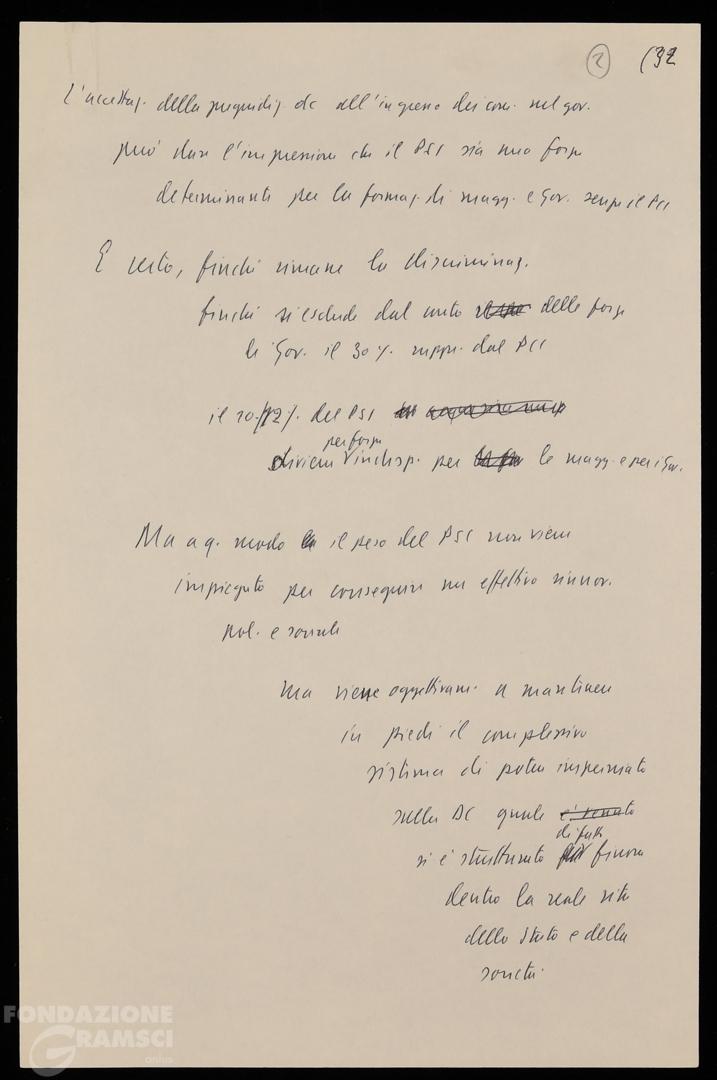 2 (32
L'accettaz. della pregiudiz. dc all'ingresso dei com. nel gov.
può dare l'impressione che il PSI sia una forza
determinante per la formaz. di magg. e Gov. senza il PCI
E certo, finché rimane la discriminaz.
finché si esclude dal conto delle forze
di Gov. il 30%. rappr. dal PCI
il 10-/12%. del PSI
per forza
diviene indisp. per le magg. e per i Gov.
Ma a q. modo il peso del PSI non viene
impiegato per conseguire un effettivo rinnov.
pol. e sociale
ma viene oggettivam. a mantenere
in piedi il complessivo
sistema di potere imperniato
sulla DC quale è venuto
di fatto
si è strutturato finora
dentro la reale vita
dello Stato e della
società.
FONDAZIONE
GRAMSCI
onlus